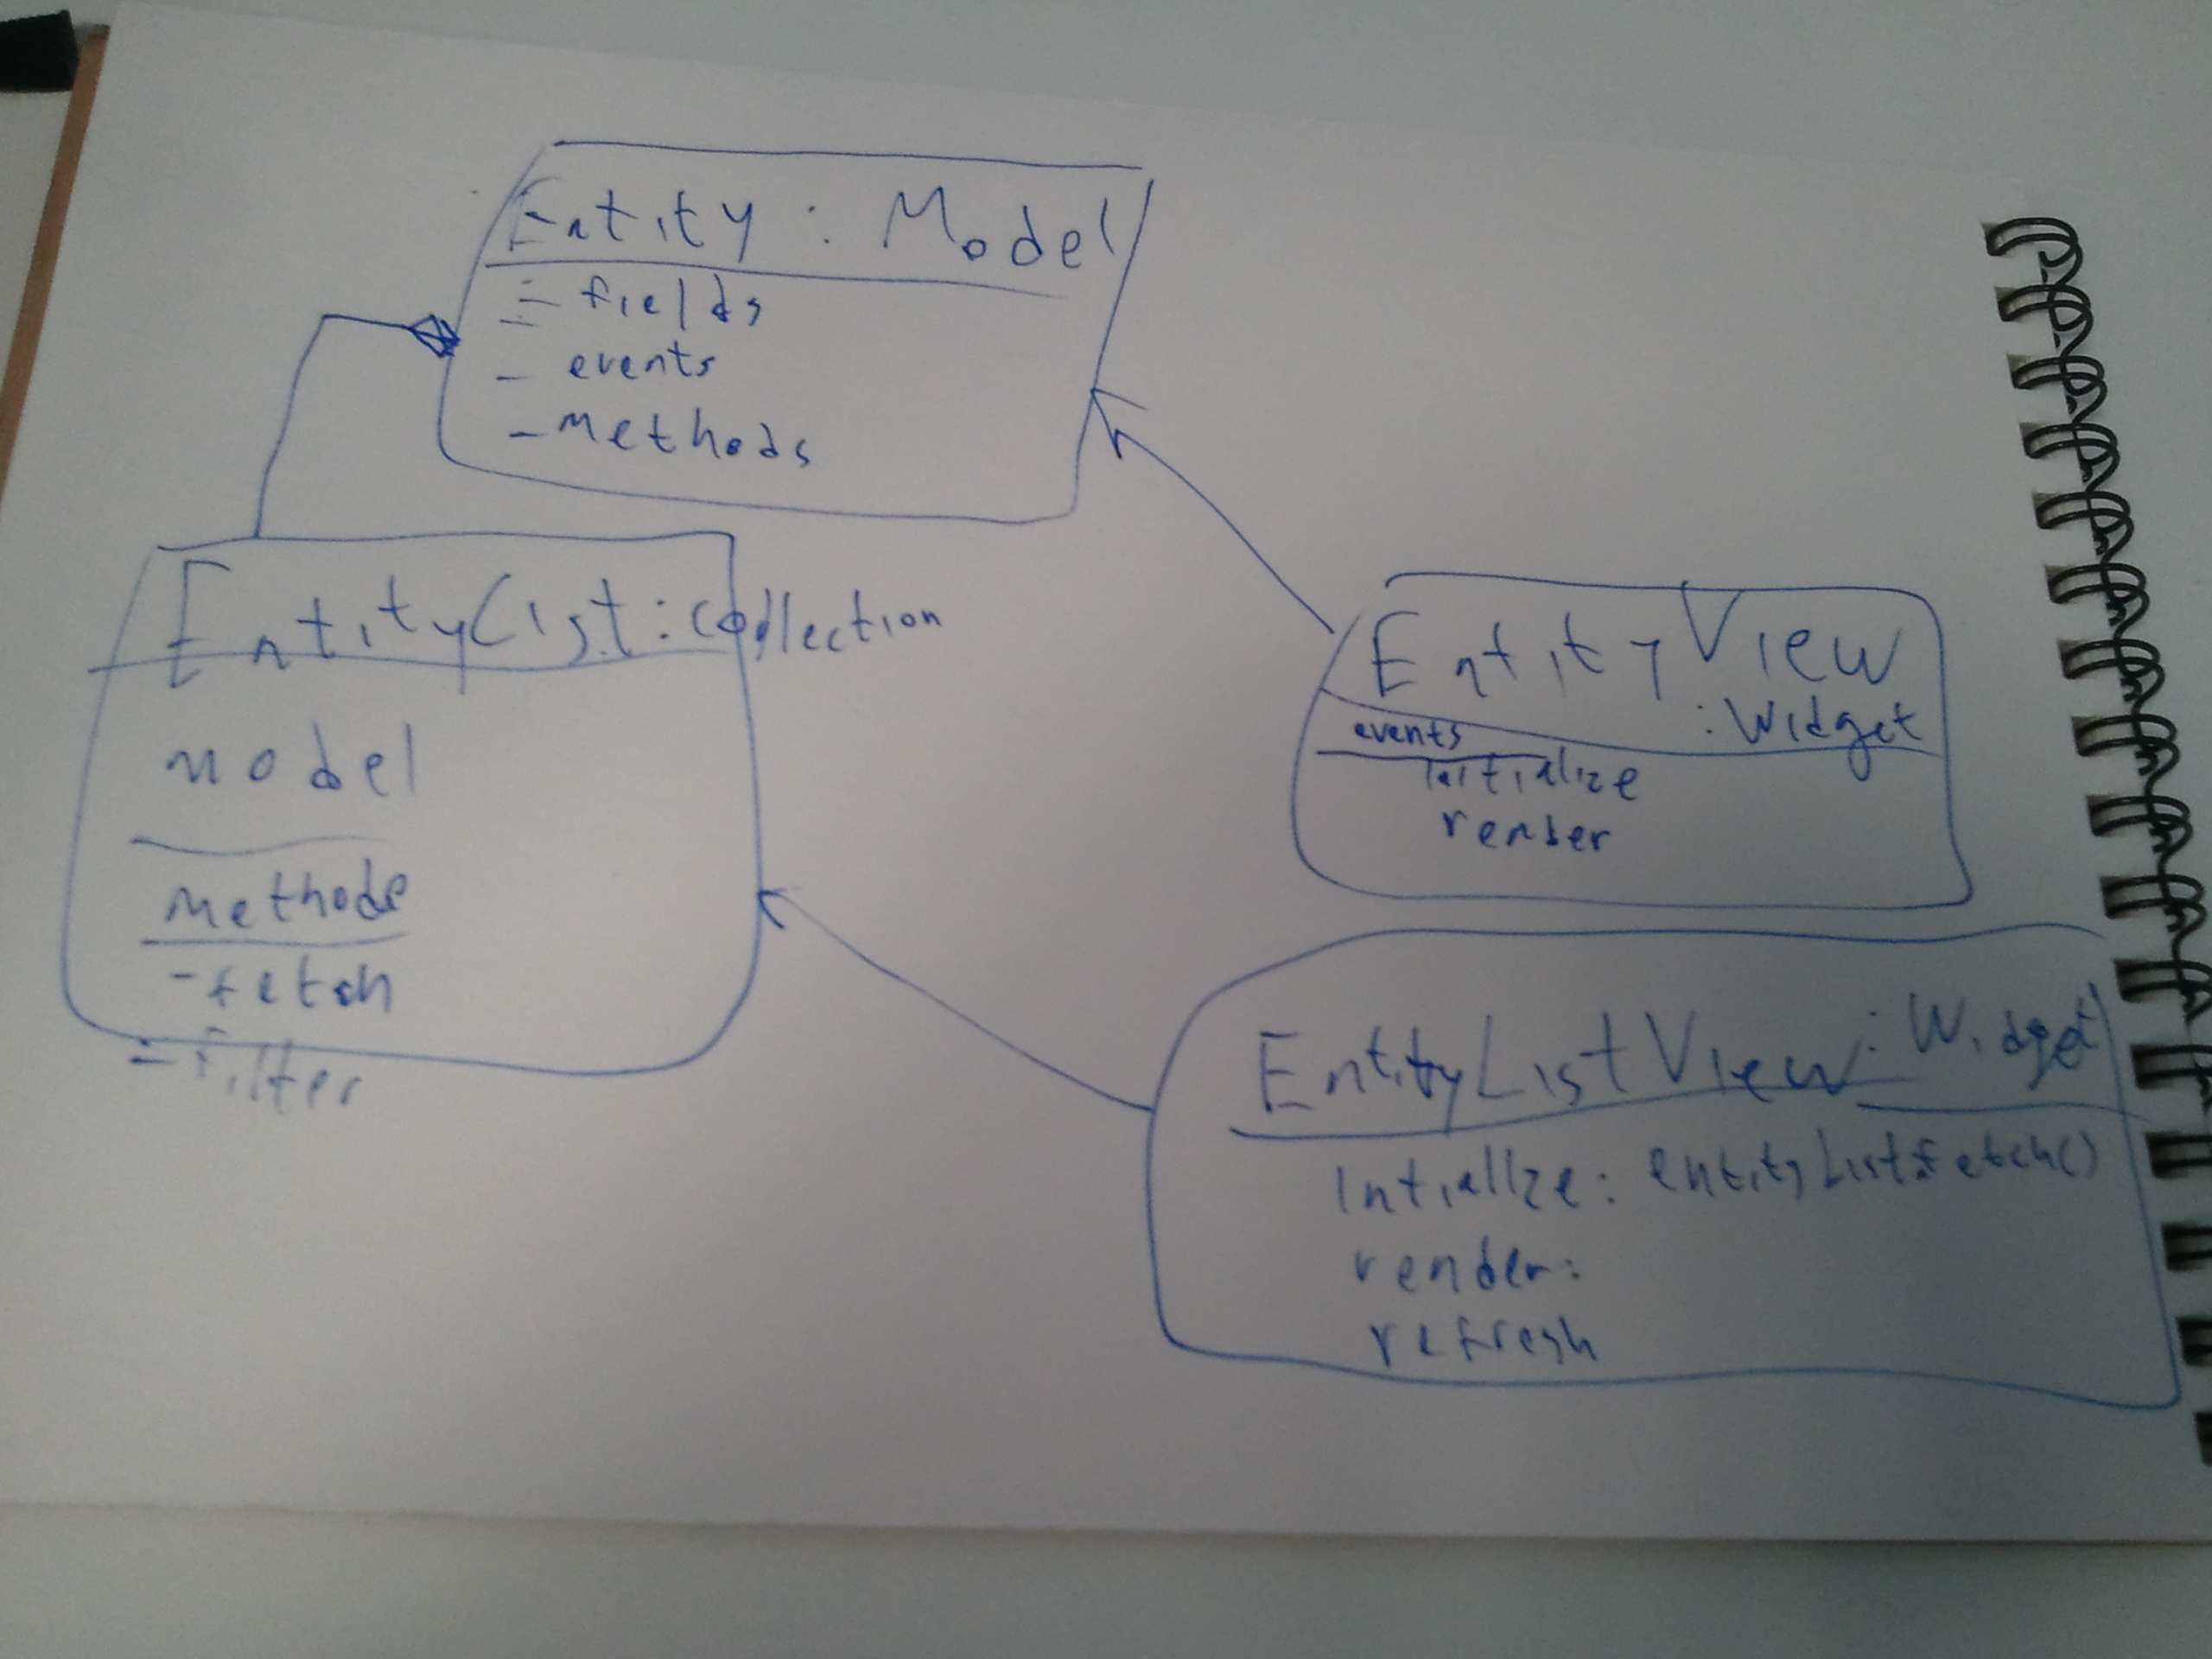 Entity : Model
- fields
- events
- methods
EntityList : collection
model
methode
- fetch
- filter
EntityView
: Widget
events
initialize
render
EntityListView : Widget
Intiallize : entityList.fetch()
render:
refresh